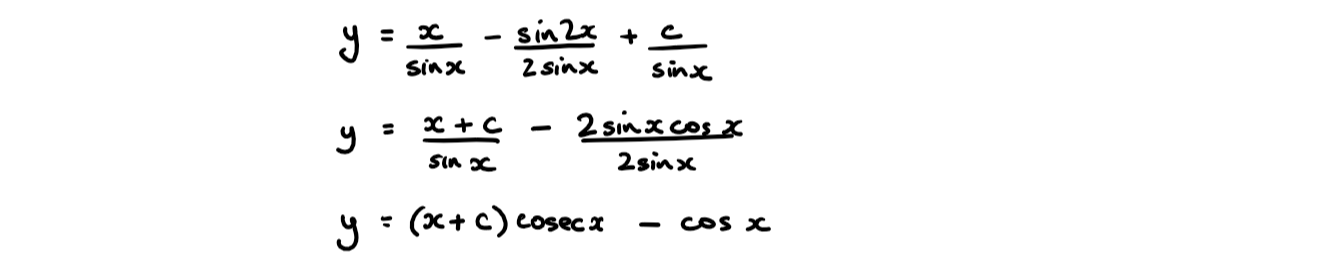 y = x/sinx - sin2x/2sinx + c/sinx
y = x + c/sin x - 2sinxcosx/2sinx
y = (x + c) cosecx - cos x